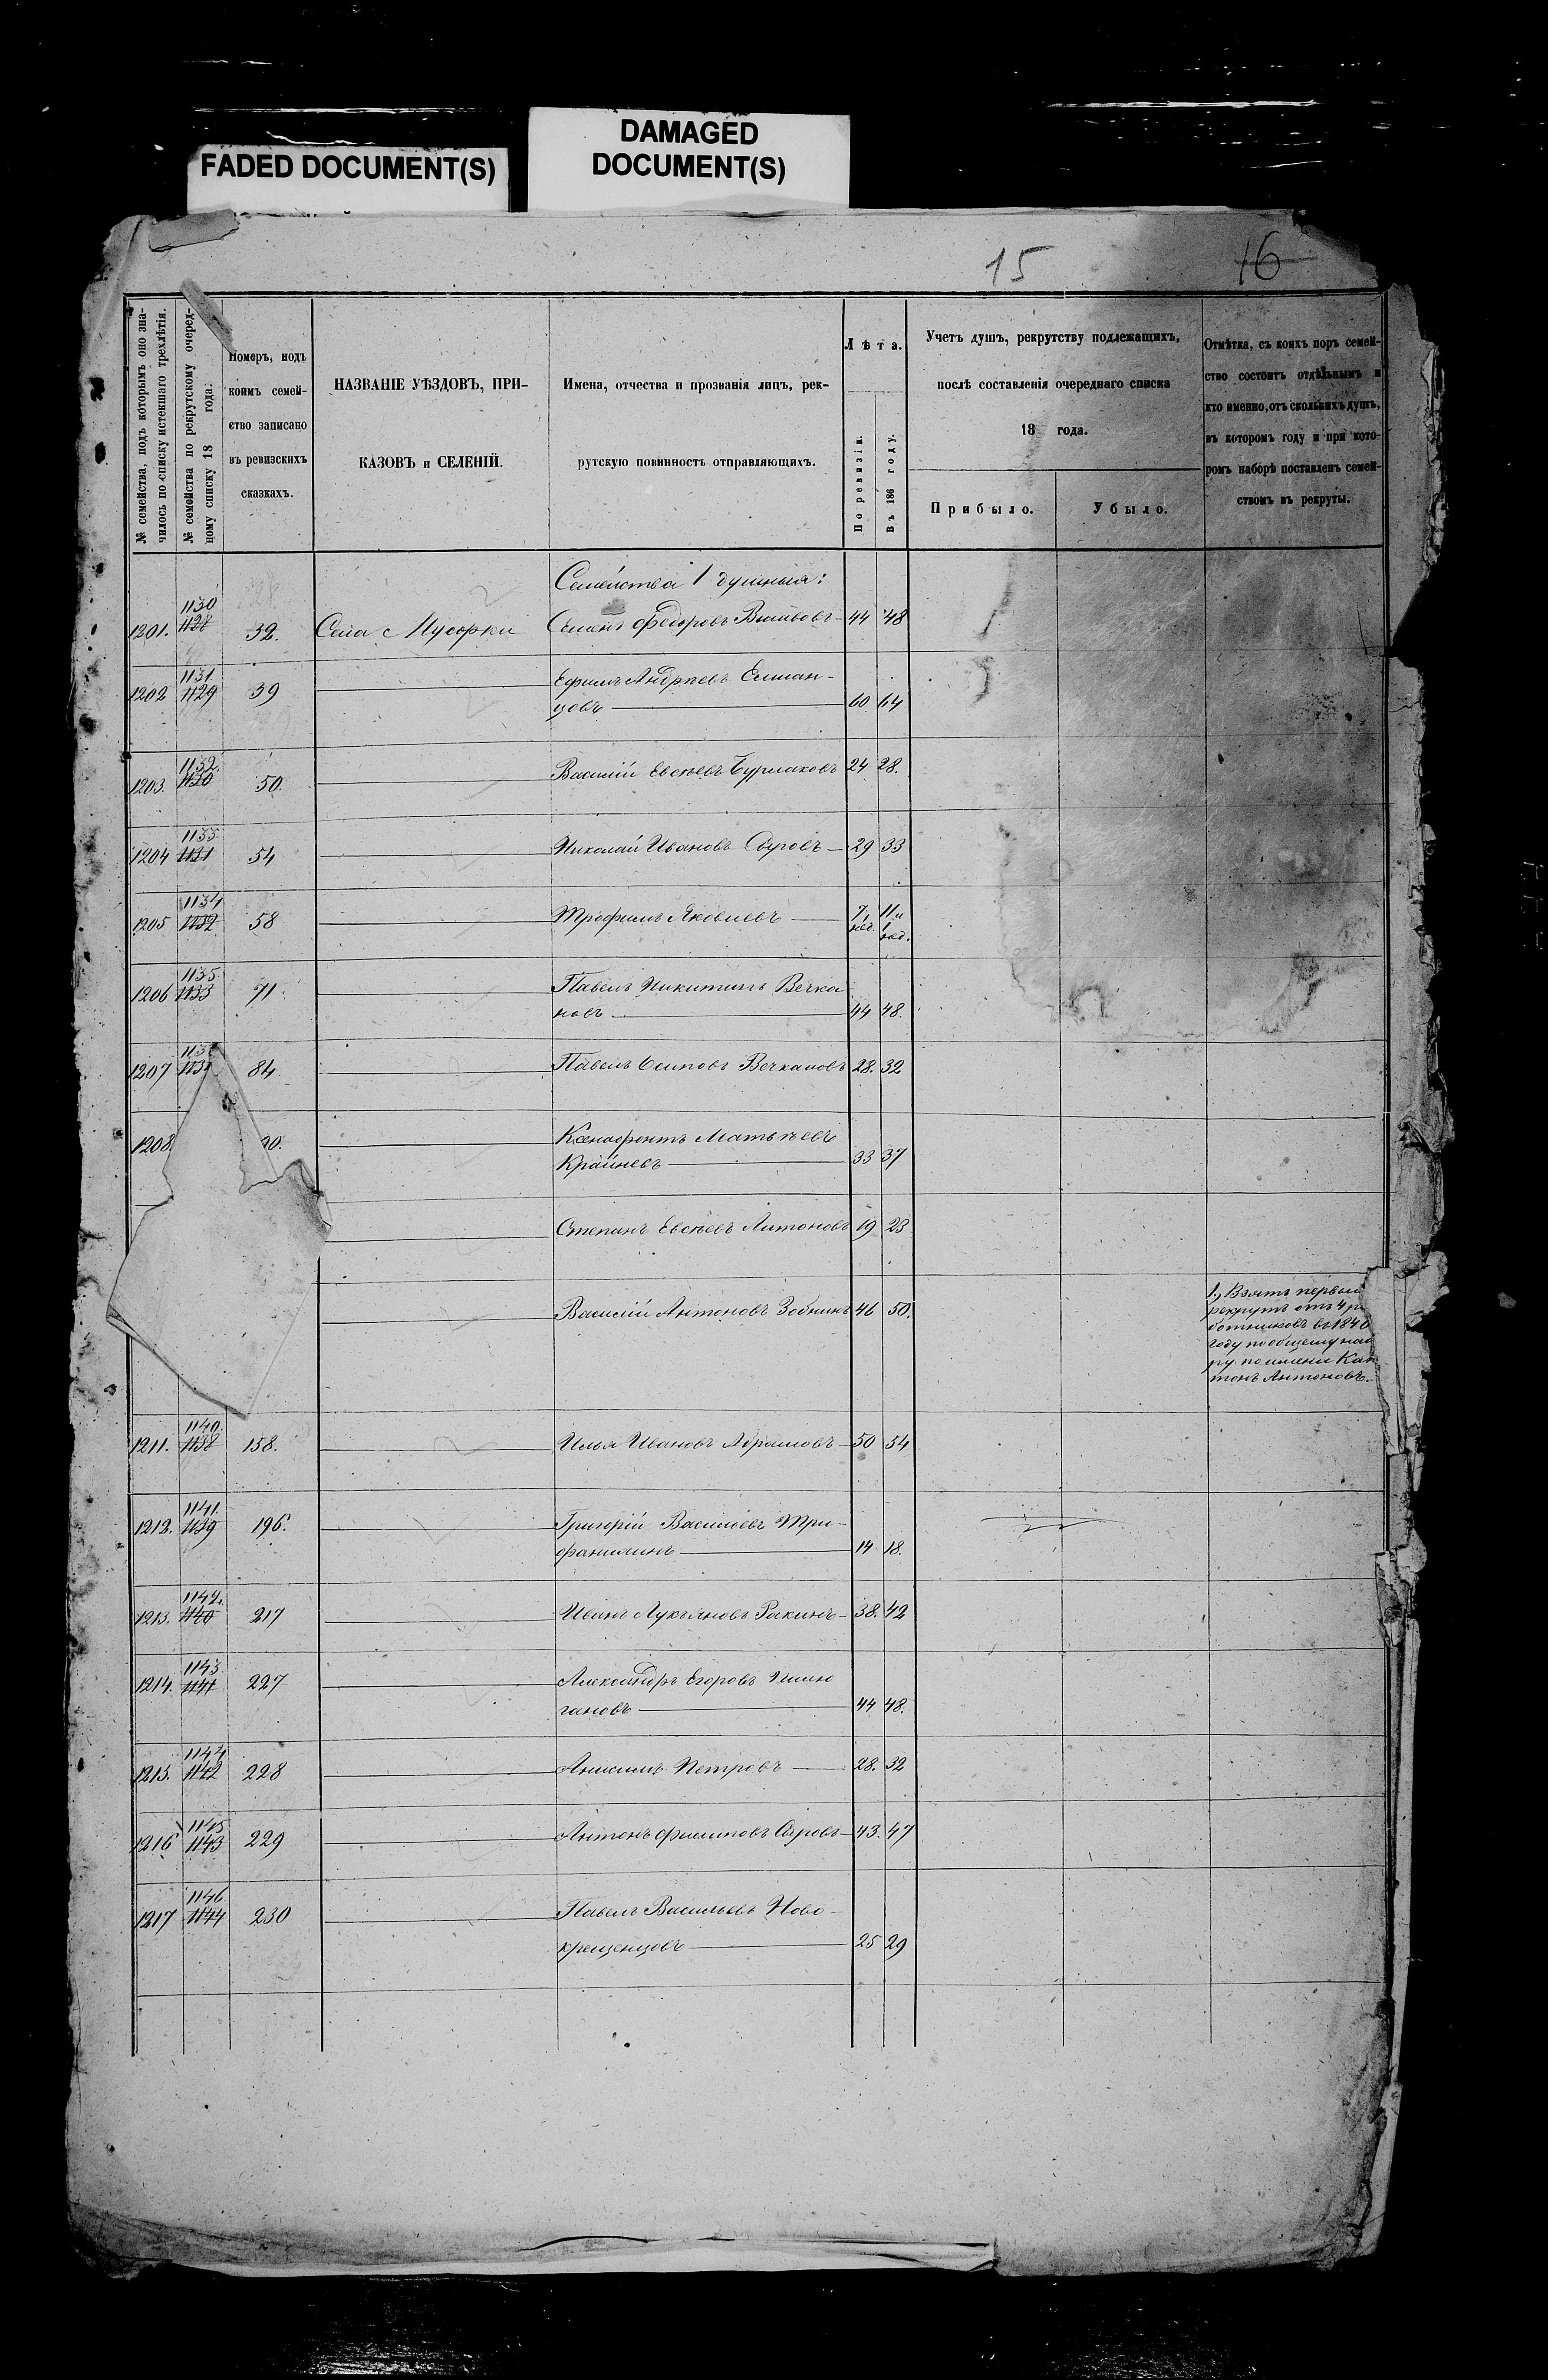 FADED DOCUMENT(S)
DAMAGED
DOCUMENT(S)
15
16
№ семейства, подъ которымъ оно зна-
чилось по списку истекшаго трехлѣтія.
№ семейства по рекрутскому очеред-
ному списку 18 года.
Номеръ, подъ
коимъ семей-
ство записано
въ ревизскихъ
сказкахъ.
НАЗВАНІЕ УѢЗДОВЪ, ПРИ-
КАЗОВЪ и СЕЛЕНІЙ.
Имена, отчества и прозванія лицъ, рек-
рутскую повинность отправляющихъ.
Лѣта.
По ревизіи.
Въ 186 году.
Учетъ душъ, рекрутству подлежащихъ,
послѣ составленія очереднаго списка
18 года.
Прибыло.
Убыло.
Отмѣтка, съ коихъ поръ семей-
ство состоитъ отдѣльнымъ и
кто именно, отъ сколькихъ душъ,
въ которомъ году и при кото-
ромъ наборѣ поставленъ семей-
ствомъ въ рекруты.
Семейства 1 душныя:
1130
1201. 1128 32. Села Мусорки Семенъ Федоровъ 44 48
1131
1202 1129 39 Ефимъ Андреевъ Елшан-
цовъ 60 64
1132
1203. 1130 50. Василій Евсѣевъ Бурлаковъ 24 28.
1133
1204 1131 54 Николай Ивановъ Сыровъ 29 33
1134
1205 1132 58 Трофимъ Яковлевъ 7 11 и
нед. нед.
1135
1206 1133 71 Павелъ Никитинъ Вечка
новъ 44 48.
1207 84 Павелъ Осиповъ Вечкановъ 28. 32
1208. 0. Ксенофонтъ Матвѣевъ
Крайневъ 33 37
Степанъ Евсѣевъ Антоновъ 19 23
Василій Антоновъ Зобнинъ 46 50.
1., Взятъ первый
рекрутъ отъ 4 ра
ботниковъ въ 184
году по общему наб
ру по имени
Антоновъ.
1140
1211. 1138 158. Илья Ивановъ Абрамовъ 50 54
1141
1212. 1139 196. Григорій Васильевъ Три-
фанилинъ 14 18.
1142
1213. 1140 217 Иванъ Лукъяновъ Ракинъ 38. 42
1143
1214. 1141 227 Александръ Егоровъ
гановъ 44 48.
1144
1215. 1142 228 Анисимъ Петровъ 28. 32
1145
1216 1143 229 Антонъ Филиповъ Сыровъ 43. 47
1146
1217 1144 230 Павелъ Васильевъ Ново-
крещенцовъ 25 29